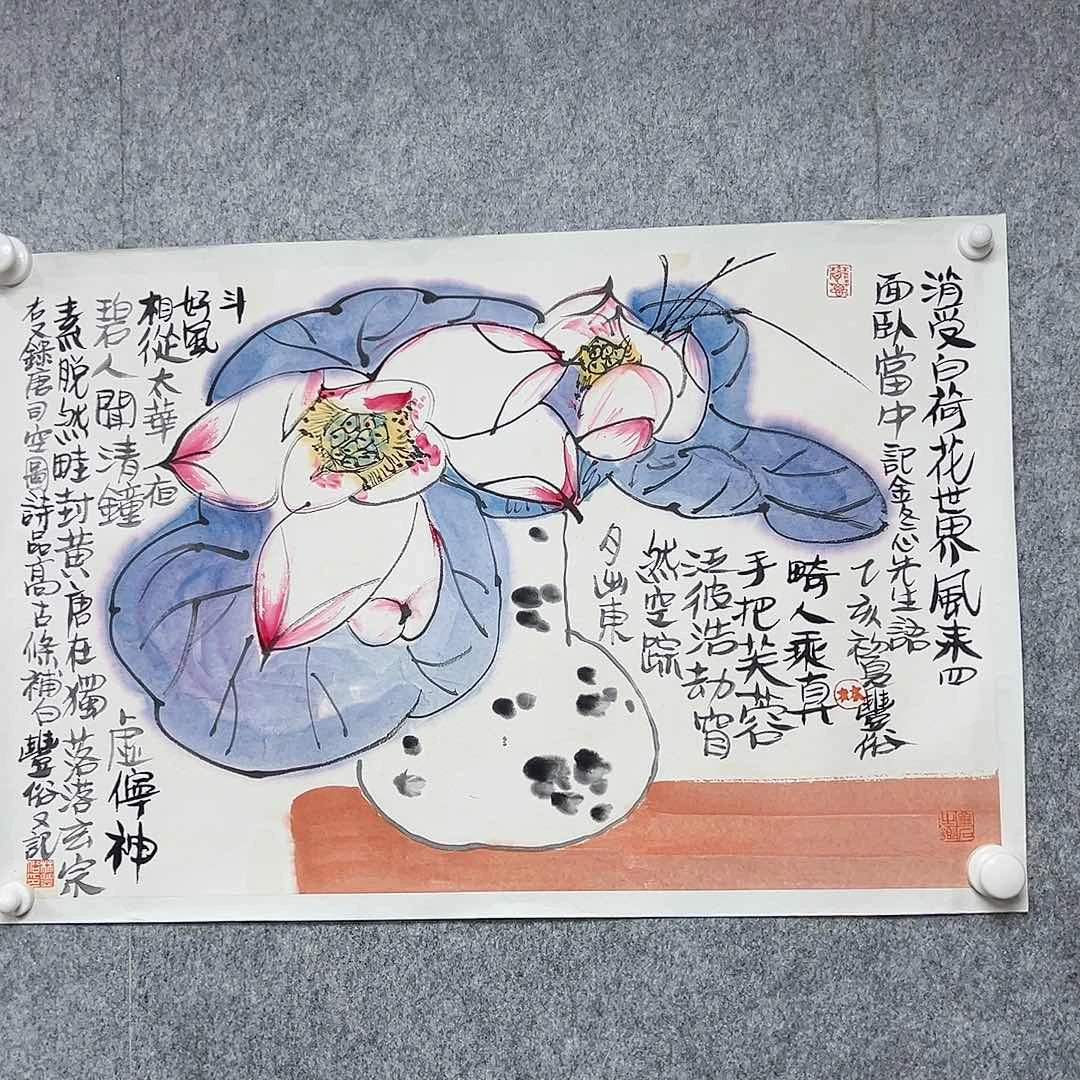 消受白荷花世界風来四
面臥當中 記金冬心先生語
乙亥初夏豐俗
畸人乘真
手把芙蓉
泛彼浩劫窅
然空踪
月出東
斗
好風
相從太華夜
碧人聞清鐘
虛佇神
素脫然畦封黄唐在獨落落玄宗
右又錄唐司空圖詩品高古條補白豐俗又記